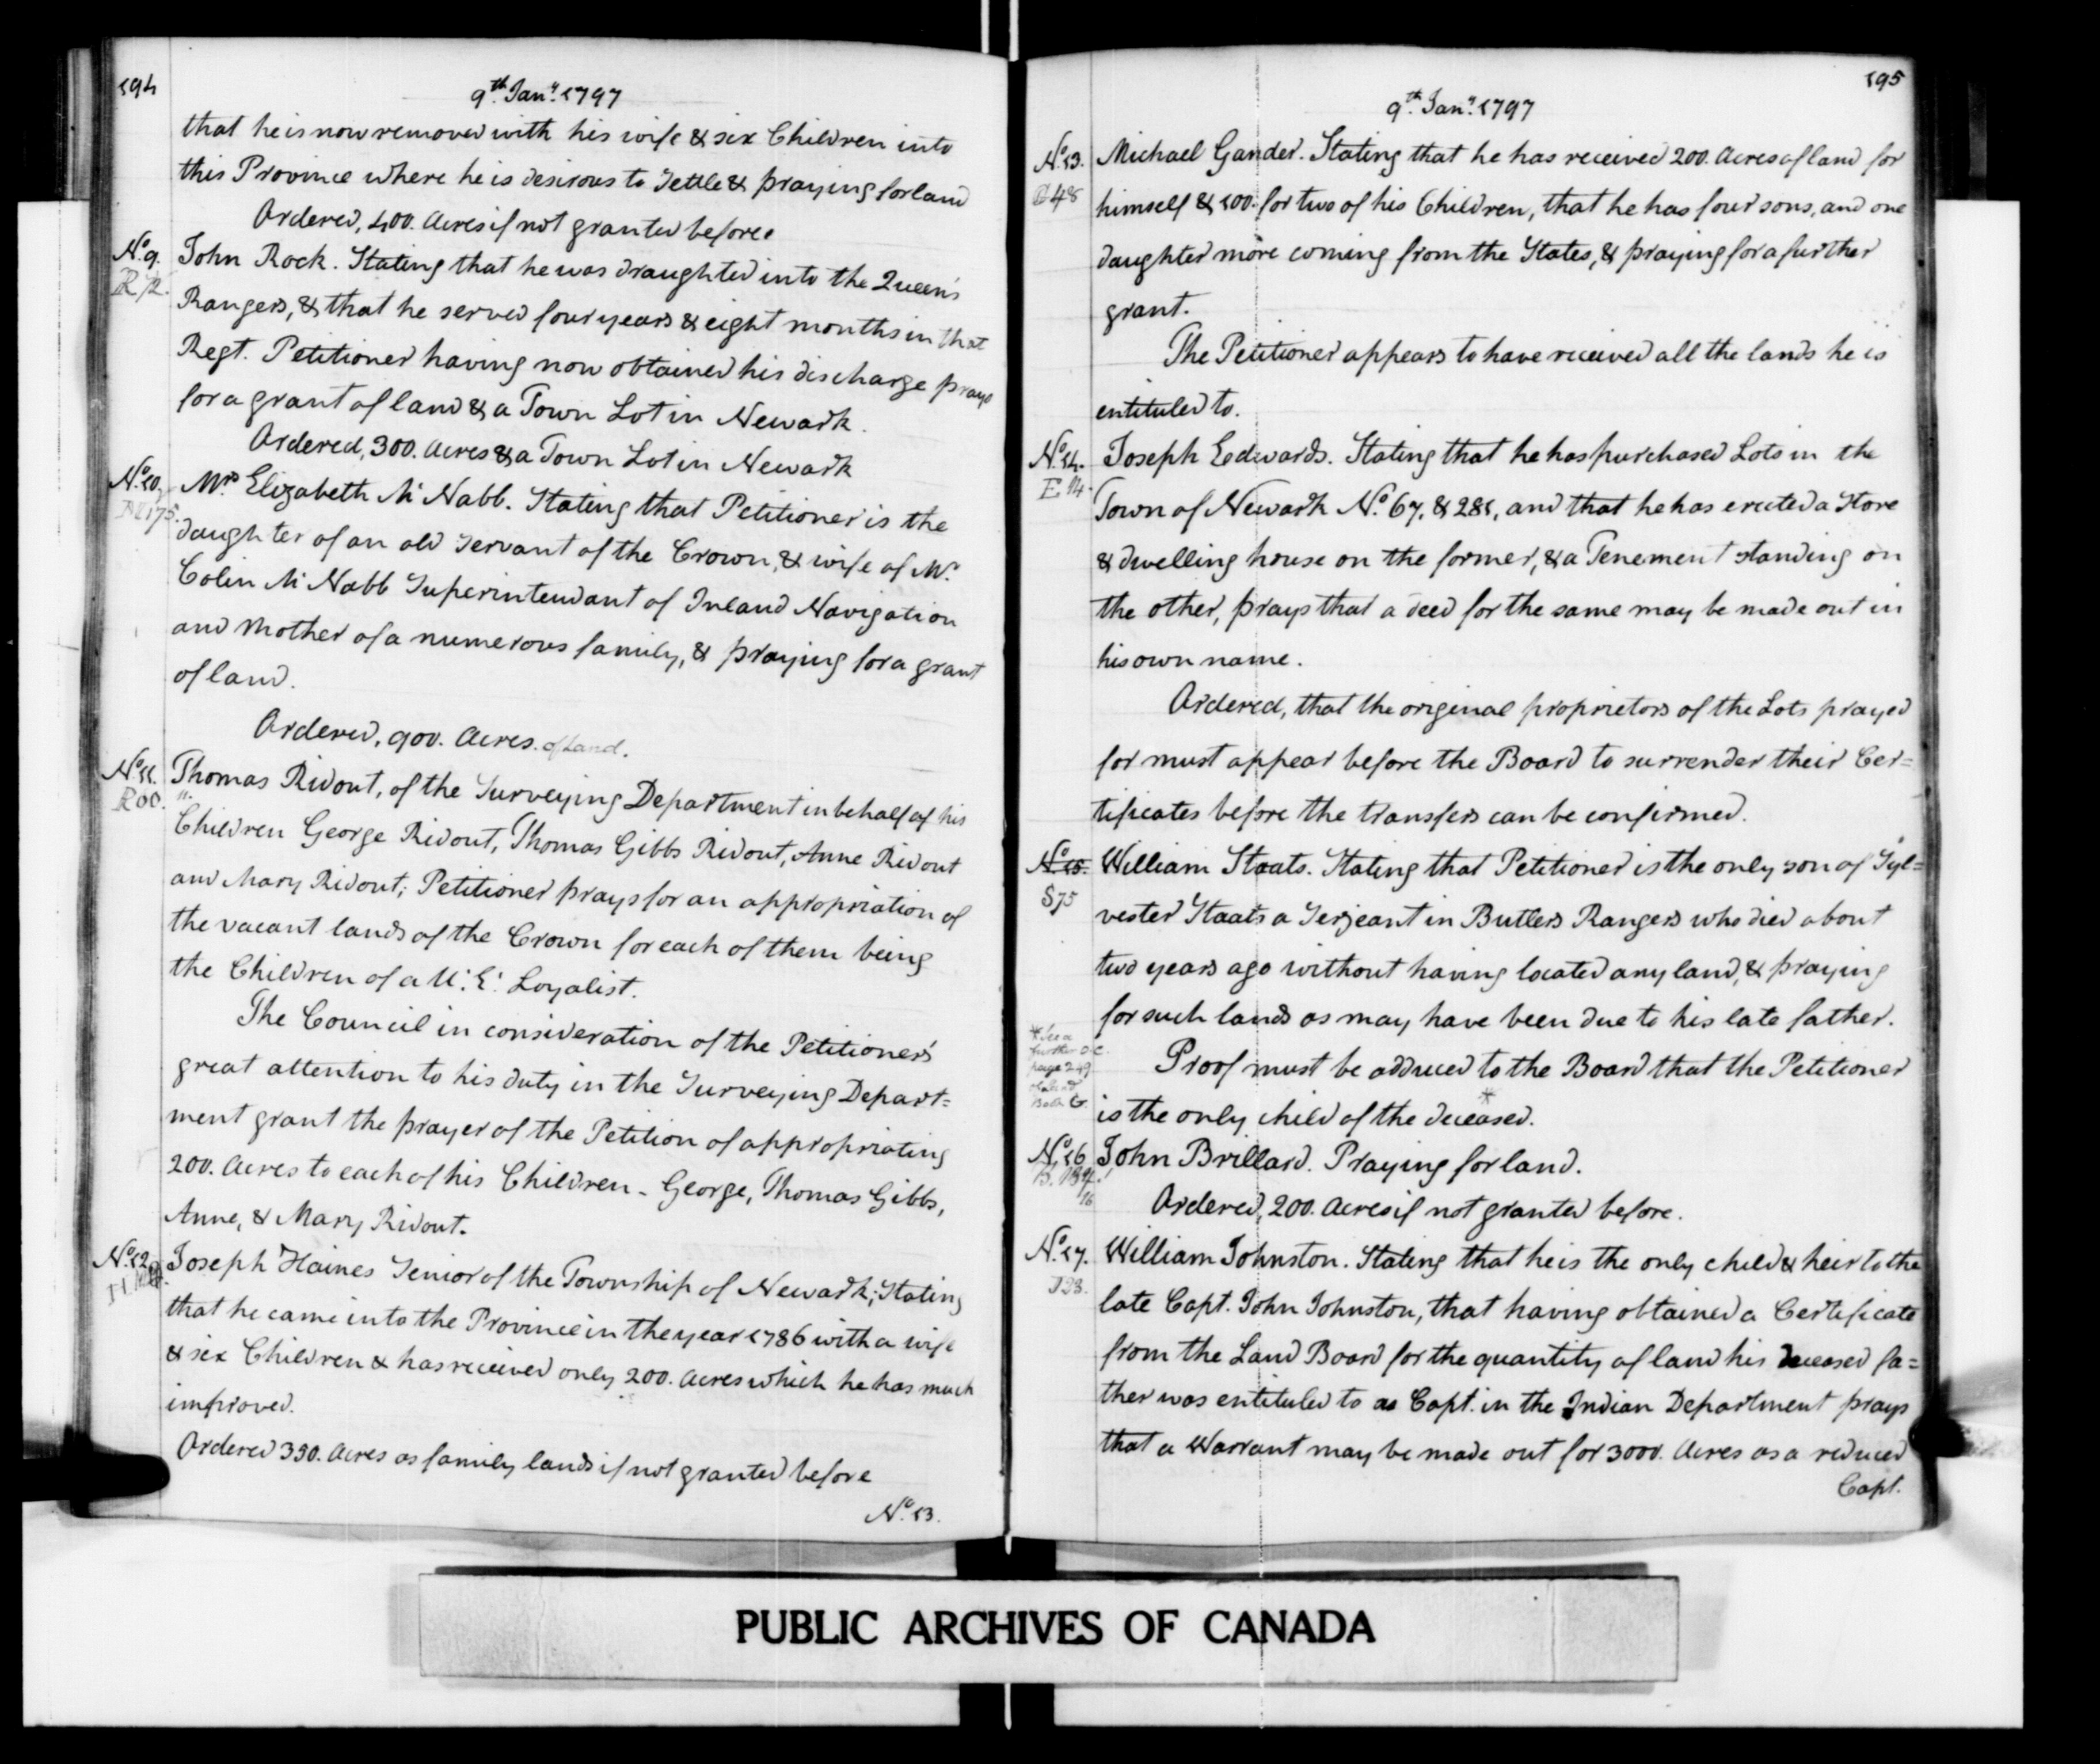 194
9th Jany. 1797
that he is now removed with his wife & six Children into
this Province where he is desirous to Settle & praying for land
Ordered, 400. Acres if not granted before.
No. 9. John Rock. Stating that he was draughted into the Queen's
Rangers, & that he served four years & eight months in that
Regt. Petitioner having now obtained his discharge prays
for a grant of land & a Town Lot in Newark.
Ordered, 300. Acres & a Town Lot in Newark
No. 10. Mrs. Elizabeth Mc Nabb. Stating that Petitioner is the
daughter of an old Servant of the Crown, & wife of Mr.
Colin Mc Nabb Superintendant of Inland Navigation
and Mother of a numerous family, & praying for a grant
of land.
Ordered, 900. Acres. of Land.
No. 11. Thomas Ridout, of the Surveying Department in behalf of his
R 60. Children George Ridout, Thomas Gibbs Ridout, Anne Ridout
and Mary Ridout; Petitioner prays for an appropriation of
the vacant lands of the Crown for each of them being
the Children of a U. E. Loyalist.
The Council in consideration of the Petitioner's
great attention to his duty in the Surveying Depart=
ment grant the prayer of the Petition of appropriating
200. Acres to each of his Children - George, Thomas Gibbs,
Anne, & Mary Ridout.
No. 12. Joseph Haines Senior of the Township of Newark; Stating
that he came into the Province in the year 1786 with a wife
& six Children & has received only 200. Acres which he has much
improved.
Ordered 350. Acres as family lands if not granted before
No. 13.
195
9th Jany. 1797
No. 13. Michael Gander. Stating that he has received 200. Acres of land for
himself & 100. for two of his Children, that he has four sons, and one
daughter more coming from the States, & praying for a further
grant.
The Petitioner appears to have received all the lands he is
entituled to.
No. 14. Joseph Edwards. Stating that he has purchased Lots in the
E 14. Town of Newark No. 67, & 281, and that he has erected a Store
& dwelling house on the former, & a Tenement standing on
the other, prays that a deed for the same may be made out in
his own name.
Ordered, that the original proprietors of the Lots prayed
for must appear before the Board to surrender their Cer=
tificates before the transfers can be confirmed.
No. 15. William Staats. Stating that Petitioner is the only son of Syl=
S 75 vester Staats a Serjeant in Butlers Rangers who died about
two years ago without having located any land, & praying
for such lands as may have been due to his late father.
* See a
further O.C.
page 249
of Land
Book G.
Proof must be adduced to the Board that the Petitioner
is the only child of the deceased. *
No. 16 John Brillard. Praying for land.
Ordered, 200. Acres if not granted before.
No. 17. William Johnston. Stating that he is the only child & heir to the
late Capt. John Johnston, that having obtained a Certificate
from the Land Board for the quantity of land his deceased fa=
ther was entituled to as Capt. in the Indian Department prays
that a Warrant may be made out for 3000. Acres as a reduced
Capt.
PUBLIC ARCHIVES OF CANADA